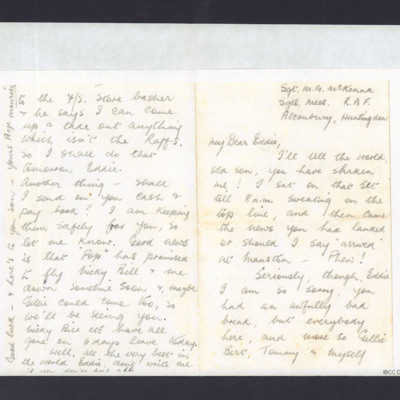 Sgt. M.G. McKenna
Sgts. Mess. R.A.F.
Alconbury, Huntingdon
My Dear Eddie,
I'll tell the world,
old son, you have shaken
me! I sat on that set
till 8 a.m. sweating on the
top line, and then came
the news you had landed
or should I say 'arrived'
at Manston - Phew!
Seriously, though, Eddie
I am so sorry you
had an awfully bad
break, but everybody
here, and more so Gillie
Bert, Tommy & myself
to the F/S. Stores basher
& he says I can come
up & take out anything
which isn't the Raff's.
So I shall do that
tomorrow, Eddie.
Another thing - shall
I send on your cash &
pay book? I am keeping
them safely for you, so
let me know. Good news
is that 'Pop' has promised
to fly Nicky, Bill & me
down sometime soon & maybe
Gillie could come too, so
we'll be seeing you.
Nicky, Bill etc have all
gone on 6 days leave today.
Well, all the very best in
the world Eddie, don't write me
Good luck - & here's to you soon - Yours Aye Maurice